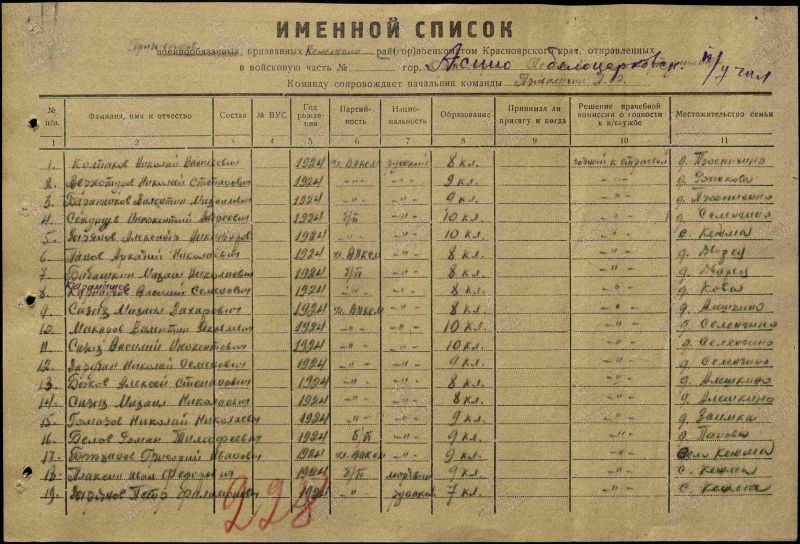 ИМЕННОЙ СПИСОК
военнообязанных, призванных Кежемским рай(гор)военкоматом Красноярского края, отправленных
в войсковую часть № гор. Асино Белоцерковск. п/училище
Команду сопровождает начальник команды
№ п/п. Фамилия, имя и отчество Состав № ВУС Год рождения Партийность Национальность Образование Принимал ли присягу и когда Решение врачебной комиссии о годности к в/службе Местожительство семьи
1 2 3 4 5 6 7 8 9 10 11
1. Колпаков Николай Васильевич 1924 чл. ВЛКСМ русский 8 кл. годный к строевой д. Проспихино
2. Верхотуров Николай Степанович 1924 -"- -"- 9 кл. -"- д.
3. Баранников Валентин Михайлович 1924 -"- -"- 9 кл. -"- д. Проспихино
4. Секурцев Иннокентий Андреевич 1924 б/п -"- 10 кл. -"- д. Селенгино
5. Зарубин Александр 1924 -"- -"- 10 кл. -"- с. Кежма
6. Панов Аркадий Николаевич 1924 чл. ВЛКСМ -"- 8 кл. -"- д. Дворец
7 Бабашкин Михаил Николаевич 1924 б/п -"- 8 кл. -"- д. Дворец
Карамышев
8. Василий Семенович 1924 -"- -"- 8 кл. -"- д. Кова
9. Сизых Михаил Захарович 1924 чл. ВЛКСМ -"- 8 кл. -"- д. Алешкино
10. Макаров Валентин 1924 -"- -"- 10 кл. -"- д. Селенгино
11. Сизых Василий Инокентович 1924 -"- -"- 10 кл. -"- д. Селенгино
12. Зарубин Николай Семенович 1924 -"- -"- 9 кл. -"- д. Селенгино
13. Бойков Алексей Степанович 1924 -"- -"- 8 кл. -"- д. Алешкино
14. Сизых Михаил Николаевич 1924 -"- -"- 8 кл. -"- д. Алешкино
15. Николай Николаевич 1924 -"- -"- 9 кл. -"- д. Заимка
16. Белов Роман Тимофеевич 1924 б/п -"- 9 кл. -"- д. Паново
17. Григорий Иванович 1924 чл. ВЛКСМ -"- 9 кл. -"- село Кежма
18. Плаксин Иван Федорович 1924 б/п мордвин 9 кл. -"- с. Кежма
19. Петр 1924 -"- русский 7 кл. -"- с. Кежма
228